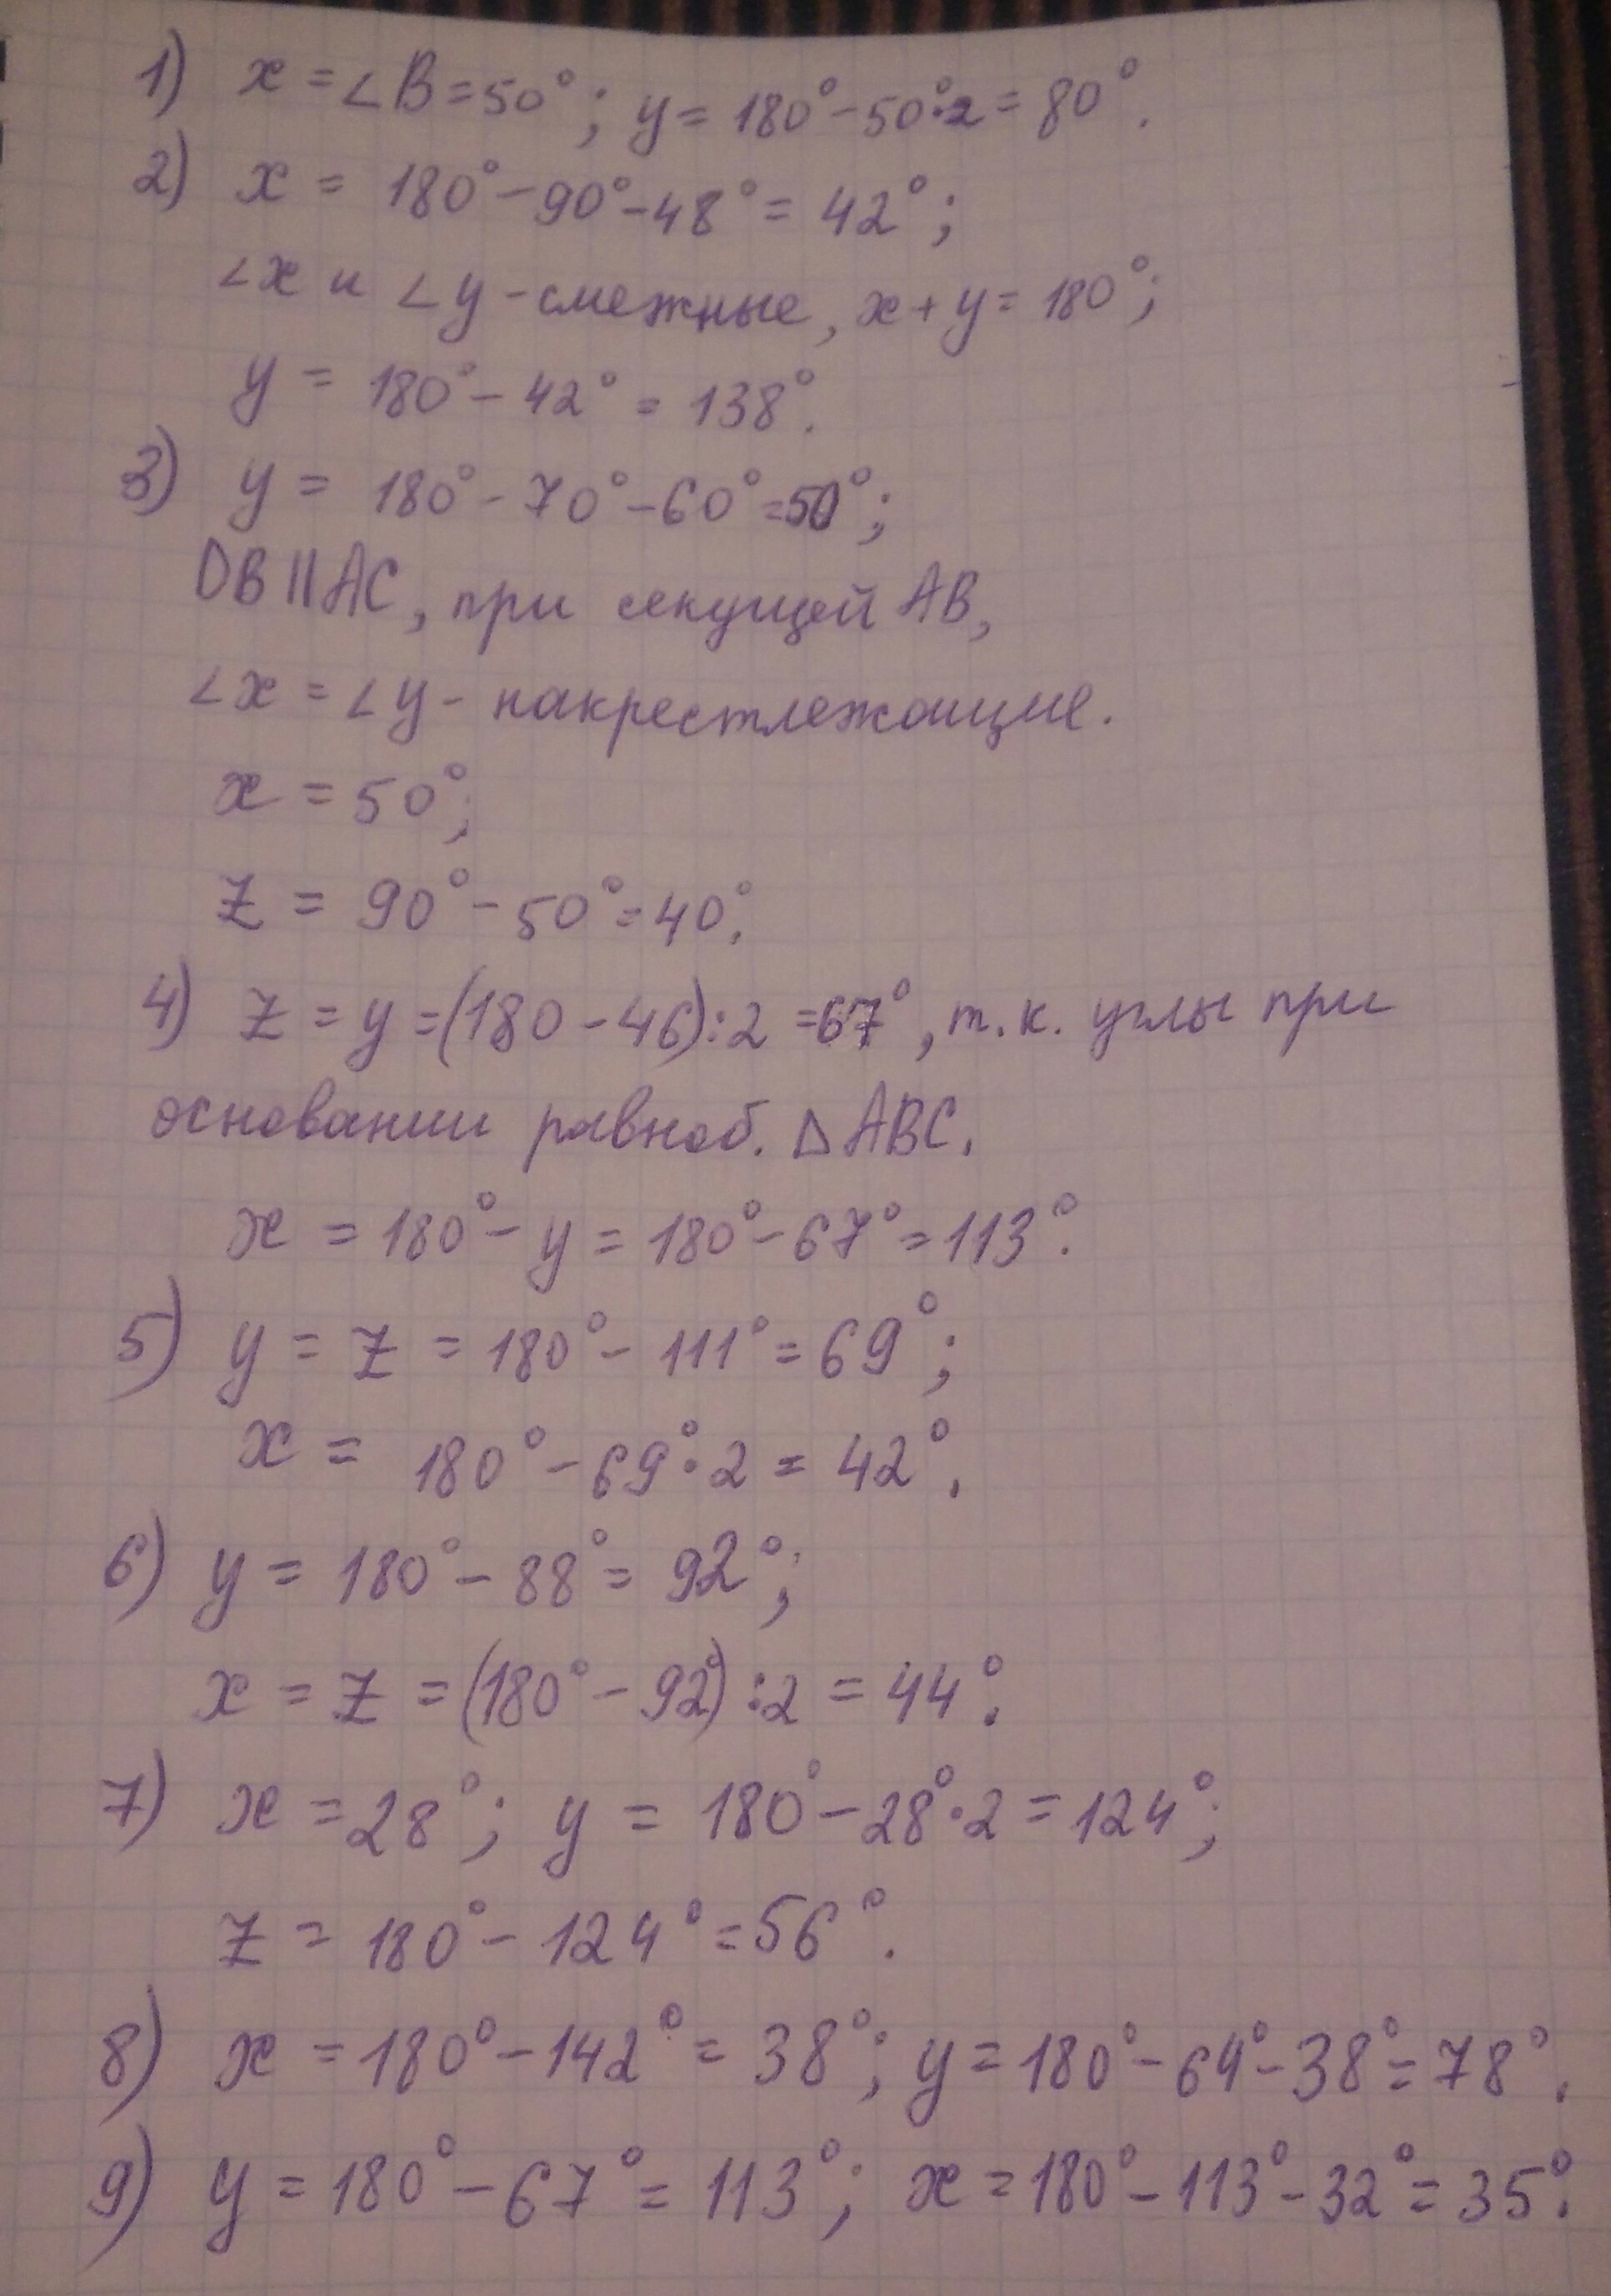 1) x = ∠B = 50°; y = 180° - 50°·2 = 80°.
2) x = 180° - 90° - 48° = 42°;
∠x и ∠y - смежные, x + y = 180°;
y = 180° - 42° = 138°.
3) y = 180° - 70° - 60° = 50°;
DB || AC, при секущей AB,
∠x = ∠y - накрестлежащие.
x = 50°;
z = 90° - 50° = 40°.
4) z = y = (180 - 46) : 2 = 67°, т.к. углы при
основании равноб. △ABC.
x = 180° - y = 180° - 67° = 113°.
5) y = z = 180° - 111° = 69°;
x = 180° - 69°·2 = 42°.
6) y = 180° - 88° = 92°;
x = z = (180° - 92°) : 2 = 44°.
7) x = 28°; y = 180° - 28°·2 = 124°;
z = 180° - 124° = 56°.
8) x = 180° - 142° = 38°; y = 180° - 64° - 38° = 78°.
9) y = 180° - 67° = 113°; x = 180° - 113° - 32° = 35°.